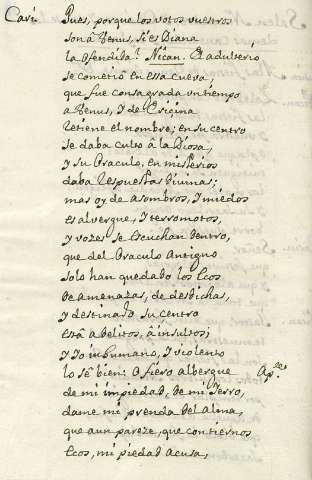 Cari. Pues, porque los votos vuestros
son â Venus, si es Diana
la ofendida? Nican. El adulterio
se cometiô en essa cueva,
que fue consagrada un tiempo
a Venus, y de Ericina
retiene el nombre; en su centro
se daba culto â la Diosa,
y su Oraculo, en misterios
daba respuestas divinas;
mas oy de asombros, y miedos
es alvergue, y terromotos,
y vozes se escuchan dentro,
que del Oraculo Antiguo
solo han quedado los Ecos
de amenazas, de desdichas,
y destinado su centro
està a delitos, â insultos;
y yo inhumano, y violento
lo sê bien: O fiero albergue Ap.te
de mi impiedad, de mi Yerro,
dame mi prenda del alma,
que aun pareze, que con tiernos
Ecos, mi piedad acusa,